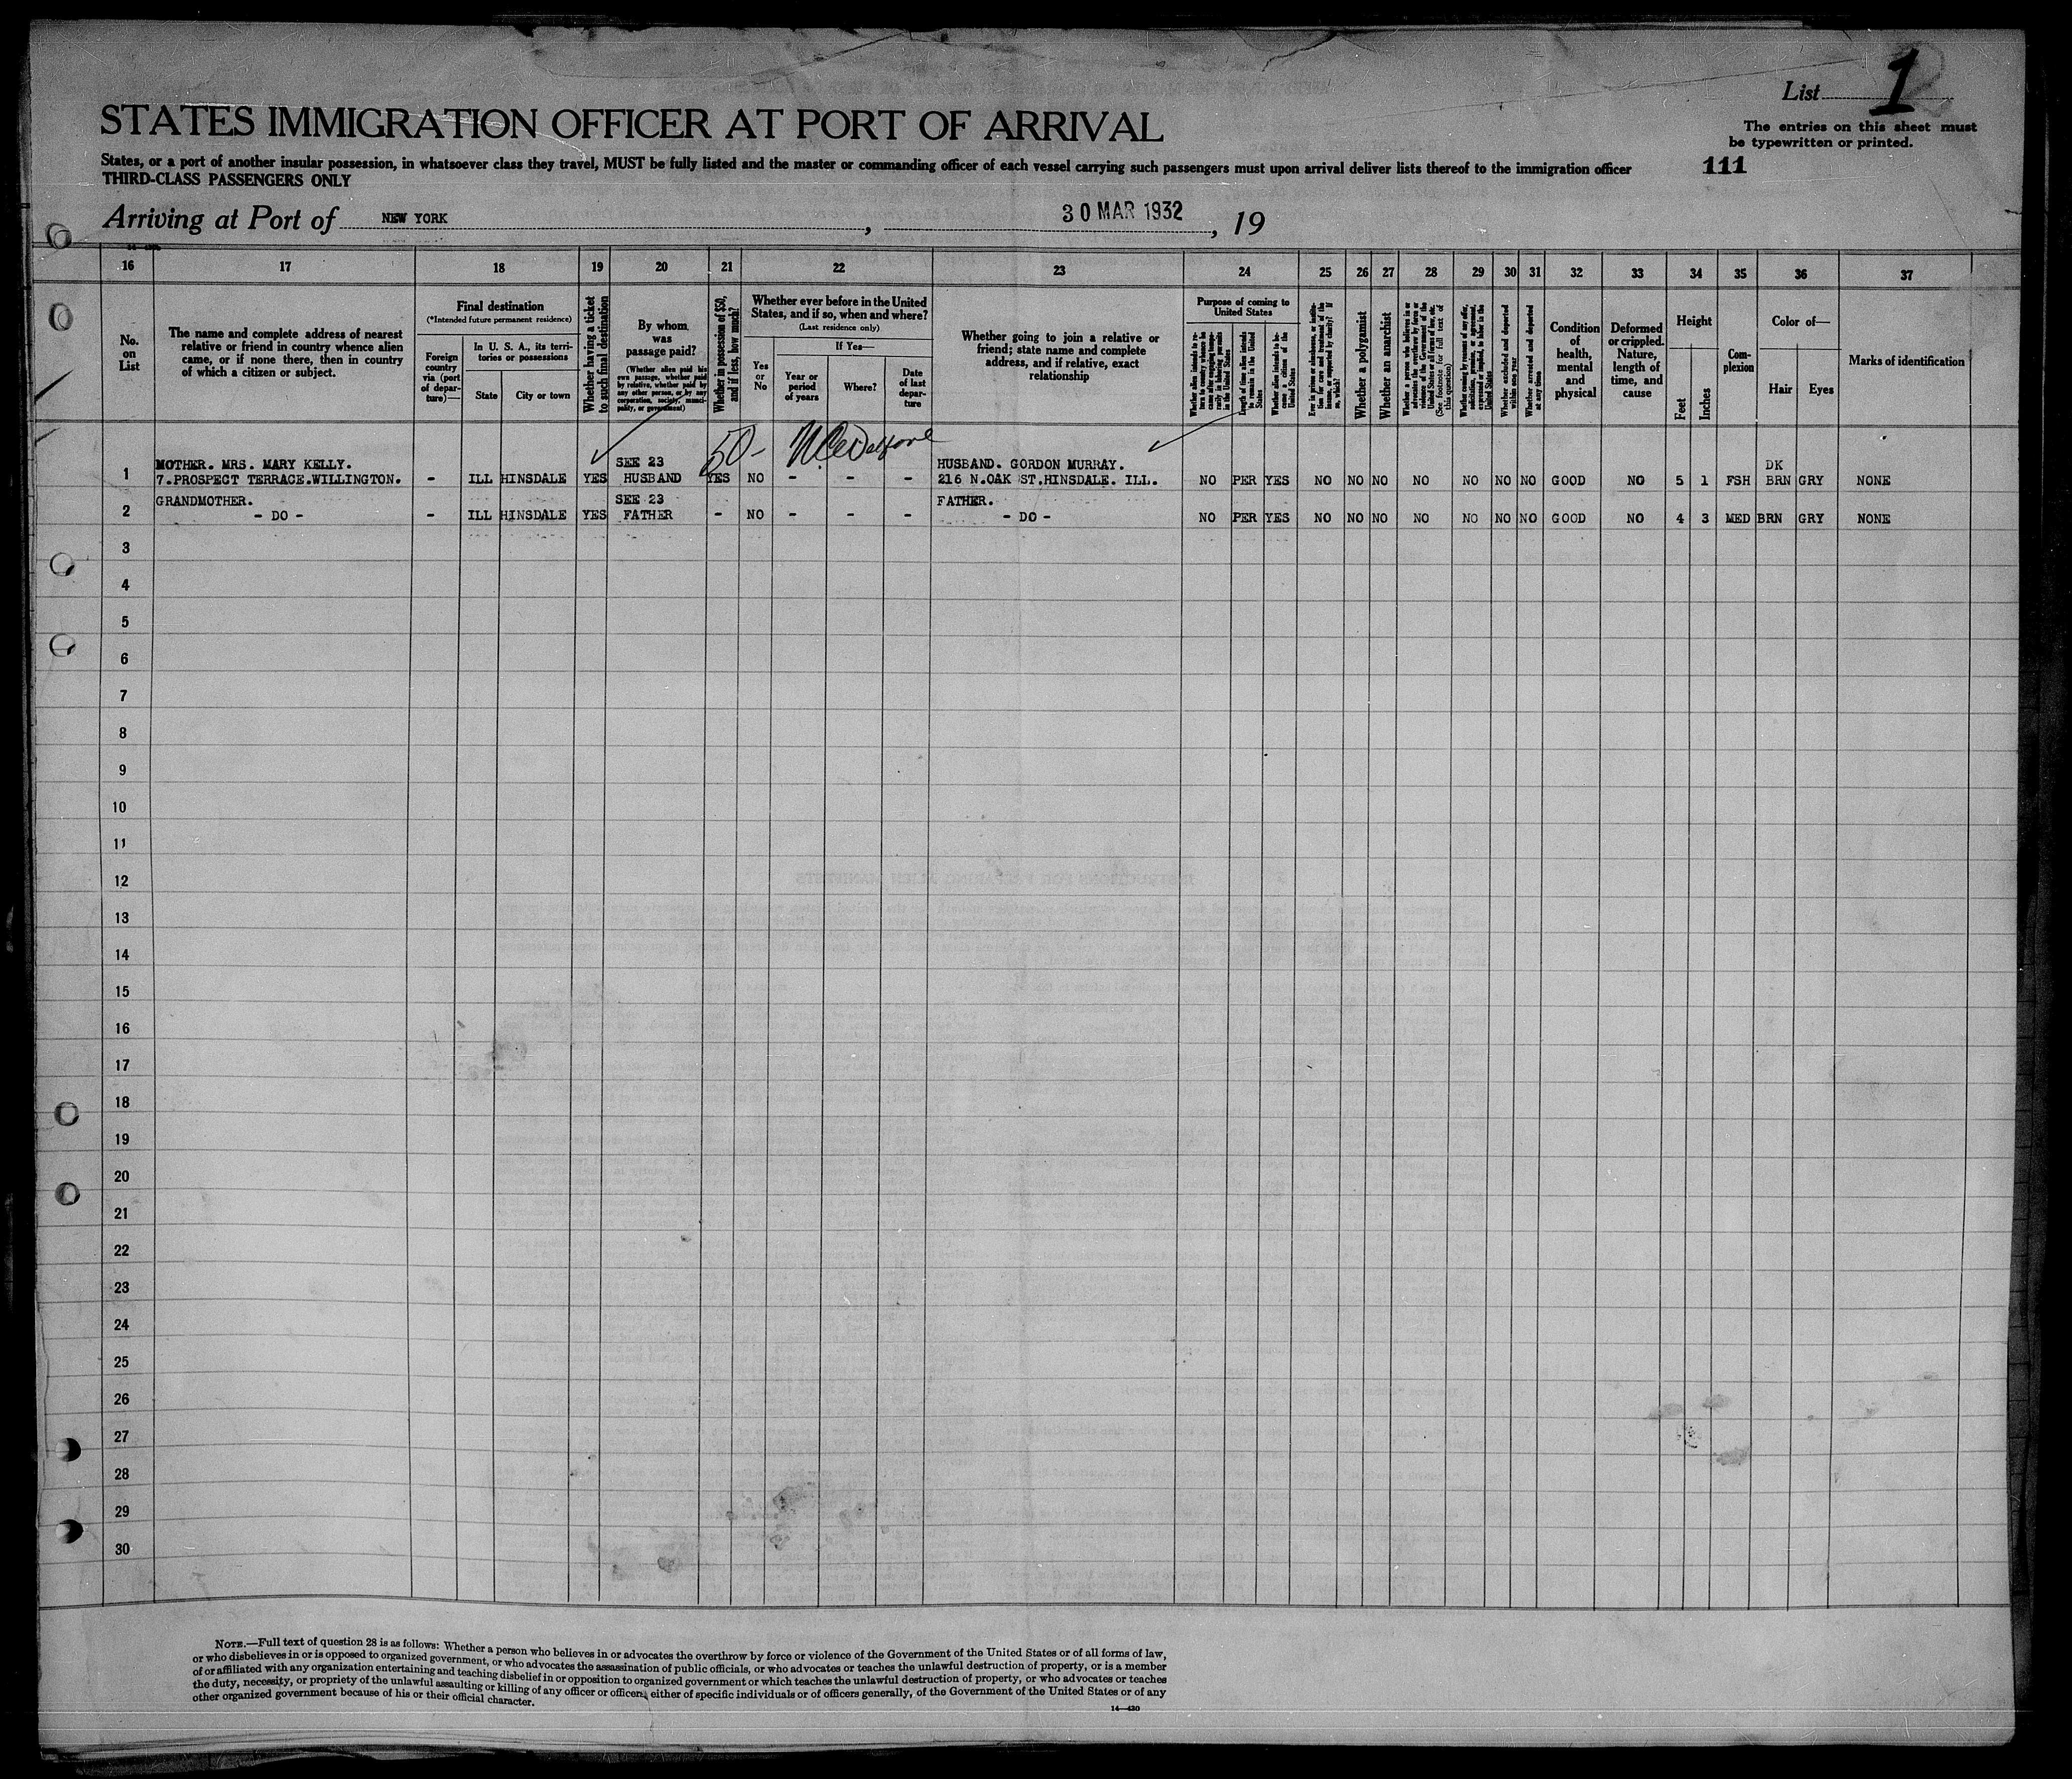 List 1
STATES IMMIGRATION OFFICER AT PORT OF ARRIVAL
The entries on this sheet must
be typewritten or printed.
States, or a port of another insular possession, in whatsoever class they travel, MUST be fully listed and the master or commanding officer of each vessel carrying such passengers must upon arrival deliver lists thereof to the immigration officer
111
THIRD-CLASS PASSENGERS ONLY
Arriving at Port of NEW YORK, 30 MAR 1932, 19
16 17 18 19 20 21 22 23 24 25 26 27 28 29 30 31 32 33 34 35 36 37
No.
on
List
The name and complete address of nearest
relative or friend in country whence alien
came, or if none there, then in country
of which a citizen or subject.
Final destination
(*Intended future permanent residence)
Foreign
country
via (port
of depar-
ture)—
In U. S. A., its terri-
tories or possessions
State
City or town
Whether having a ticket
to such final destination
By whom
was
passage paid?
(Whether alien paid his
own passage, whether paid
by relative, whether paid by
any other person, or by any
corporation, society, munici-
pality, or government)
Whether in possession of $50,
and if less, how much?
Whether ever before in the United
States, and if so, when and where?
(Last residence only)
Yes
or
No
If Yes—
Year or
period
of years
Where?
Date
of last
depar-
ture
Whether going to join a relative or
friend; state name and complete
address, and if relative, exact
relationship
Purpose of coming to
United States
Length of time alien intends
to remain in the United
States
Whether alien intends to be-
come a citizen of the
United States
Whether a polygamist
Whether an anarchist
(See footnote for full text of
this question)
Whether excluded and deported
within one year
Whether arrested and deported
at any time
Condition
of
health,
mental
and
physical
Deformed
or crippled.
Nature,
length of
time, and
cause
Height
Feet
Inches
Com-
plexion
Color of—
Hair
Eyes
Marks of identification
50-
MOTHER. MRS. MARY KELLY. SEE 23 HUSBAND. GORDON MURRAY. DK
1 7.PROSPECT TERRACE.WILLINGTON. - ILL HINSDALE YES HUSBAND YES NO - - - 216 N.OAK ST.HINSDALE. ILL. NO PER YES NO NO NO NO NO NO NO GOOD NO 5 1 FSH BRN GRY NONE
GRANDMOTHER. SEE 23 FATHER.
2 - DO - - ILL HINSDALE YES FATHER - NO - - - - DO - NO PER YES NO NO NO NO NO NO NO GOOD NO 4 3 MED BRN GRY NONE
3
4
5
6
7
8
9
10
11
12
13
14
15
16
17
18
19
20
21
22
23
24
25
26
27
28
29
30
NOTE.—Full text of question 28 is as follows: Whether a person who believes in or advocates the overthrow by force or violence of the Government of the United States or of all forms of law,
or who disbelieves in or is opposed to organized government, or who advocates the assassination of public officials, or who advocates or teaches the unlawful destruction of property, or is a member
of or affiliated with any organization entertaining and teaching disbelief in or opposition to organized government or which teaches the unlawful destruction of property, or who advocates or teaches
the duty, necessity, or propriety of the unlawful assaulting or killing of any officer or officers, either of specific individuals or of officers generally, of the Government of the United States or of any
other organized government because of his or their official character.
14—430